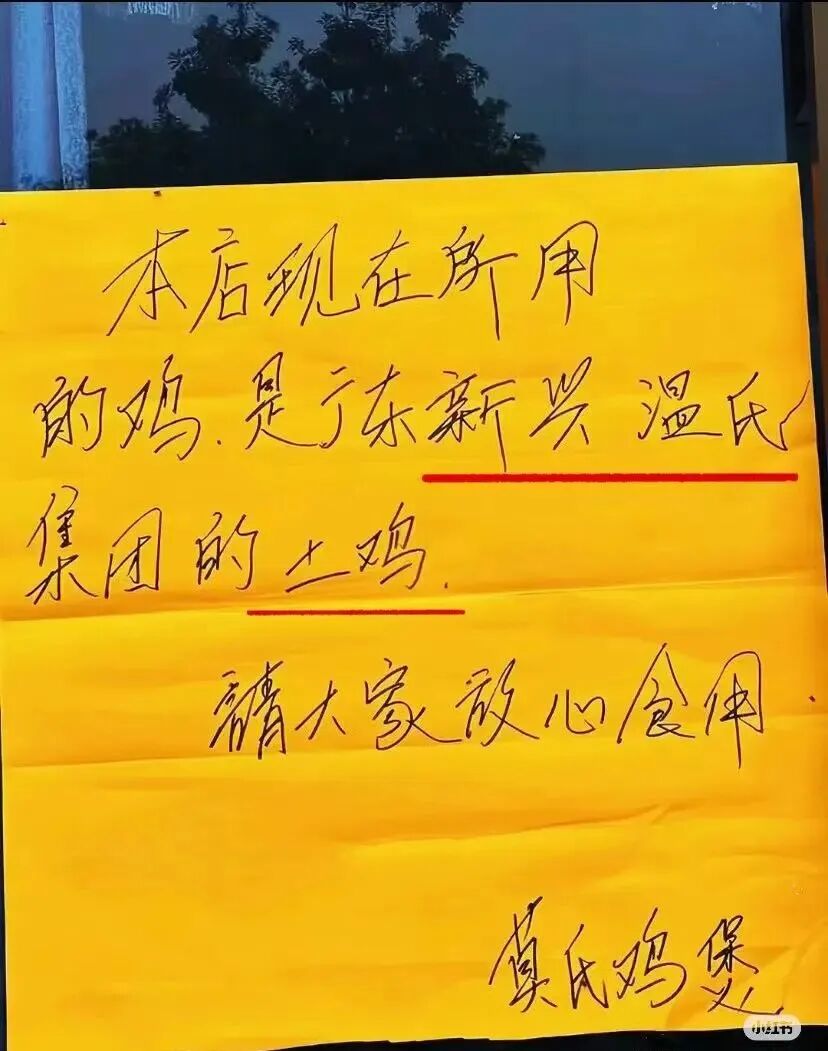 本店现在所用
的鸡.是广东新兴温氏
集团的土鸡.
請大家放心食用
莫氏鸡煲
小红书